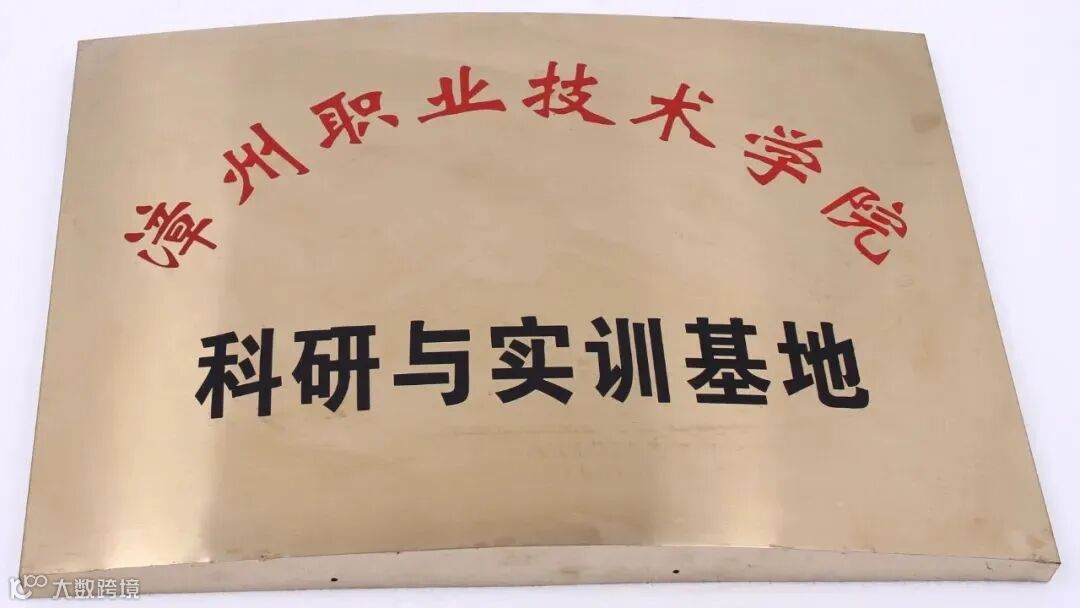 漳州职业技术学院
科研与实训基地
大数跨境